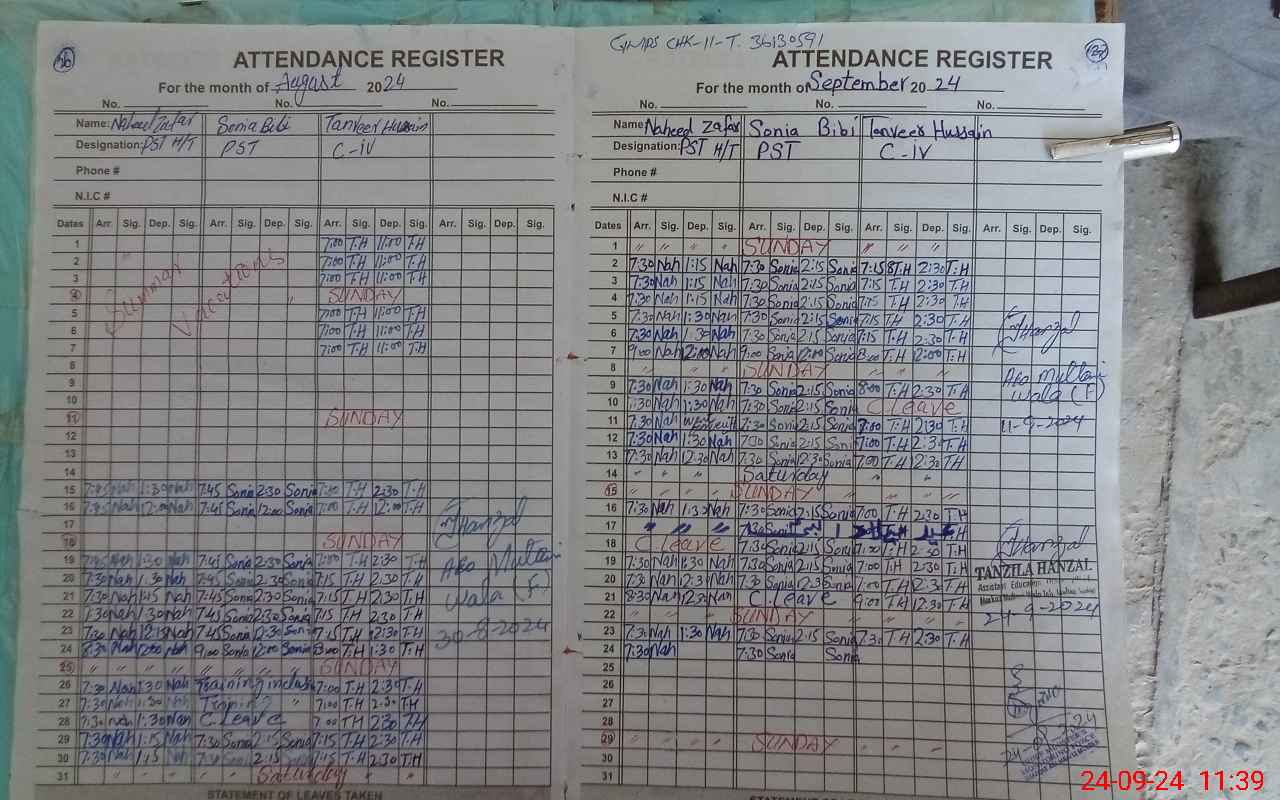 36
ATTENDANCE REGISTER
For the month of August 2024
No. No. No.
Name: Naheed Zafar Sonia Bibi Tanveer Hussain
Designation: PST H/T PST C-iV
Phone #
N.I.C #
Dates Arr. Sig. Dep. Sig. Arr. Sig. Dep. Sig. Arr. Sig. Dep. Sig. Arr. Sig. Dep. Sig.
1 7:00 T.H 11:00 T.H
2 7:00 T.H 11:00 T.H
3 7:00 T.H 11:00 T.H
Summar Vacations
4 SUNDAY
5 7:00 T.H 11:00 T.H
6 7:00 T.H 11:00 T.H
7 7:00 T.H 11:00 T.H
8
9
10
11 SUNDAY
12
13
14
15 7:45 Nah 1:30 Nah 7:45 Sonia 2:30 Sonia T.H 2:30 T.H
16 7:45 Nah 12:00 Nah 7:45 Sonia 12:00 Sonia 7:00 T.H 12:00 T.H
17
18 SUNDAY
19 7:45 Nah 1:30 Nah 7:45 Sonia 2:30 Sonia 7:00 T.H 2:30 T.H
20 7:30 Nah 1:30 Nah 7:45 Sonia 2:30 Sonia 7:15 T.H 2:30 T.H
21 7:30 Nah 1:15 Nah 7:45 Sonia 2:30 Sonia 7:15 T.H 2:30 T.H
22 Nah 1:30 Nah 7:45 Sonia 2:30 Sonia 7:15 T.H 2:30 T.H
23 7:30 Nah 12:15 Nah 7:45 Sonia 2:30 Sonia 7:15 T.H 2:30 T.H
24 8:30 Nah 12:00 Nah 9:00 Sonia 12:00 Sonia 8:00 T.H 1:30 T.H
25 SUNDAY
26 7:30 Nah 1:30 Nah Training 7:00 T.H 2:30 T.H
27 7:30 Nah 1:30 Nah Training 7:00 T.H 2:30 T.H
28 7:30 Nah 1:30 Nah C.Leave 7:00 T.H 2:30 T.H
29 7:30 Nah 1:15 Nah 7:30 Sonia 2:15 Sonia 7:15 T.H 2:30 T.H
30 7:30 Nah 1:15 Nah 7:30 Sonia 2:15 Sonia 7:15 T.H 2:30 T.H
31 Saturday
Hanzal
AEO Multani
wala (F)
30-8-2024
STATEMENT OF LEAVES TAKEN
GMPS CHK-11-T. 36130591
ATTENDANCE REGISTER
For the month of September 2024
No. No. No.
Name: Naheed Zafar Sonia Bibi Tanveer Hussain
Designation: PST H/T PST C-iV
Phone #
N.I.C #
Dates Arr. Sig. Dep. Sig. Arr. Sig. Dep. Sig. Arr. Sig. Dep. Sig. Arr. Sig. Dep. Sig.
1 SUNDAY
2 7:30 Nah 1:15 Nah 7:30 Sonia 2:15 Sonia 7:15 T.H 2:30 T.H
3 7:30 Nah 1:15 Nah 7:30 Sonia 2:15 Sonia 7:15 T.H 2:30 T.H
4 7:30 Nah 1:15 Nah 7:30 Sonia 2:15 Sonia 7:15 T.H 2:30 T.H
5 7:30 Nah 1:30 Nah 7:30 Sonia 2:15 Sonia 7:15 T.H 2:30 T.H
6 7:30 Nah 1:30 Nah 7:30 Sonia 2:15 Sonia 7:15 T.H 2:30 T.H
7 9:00 Nah 12:00 Nah 9:00 Sonia 12:00 Sonia 8:00 T.H 12:00 T.H
8 SUNDAY
9 7:30 Nah 1:30 Nah 7:30 Sonia 2:15 Sonia 8:00 T.H 2:30 T.H
10 7:30 Nah 1:30 Nah 7:30 Sonia 2:15 Sonia C Leave
11 7:30 Nah 7:30 Sonia 2:15 Sonia 7:00 T.H 2:30 T.H
12 7:30 Nah 1:30 Nah 7:30 Sonia 2:15 Sonia 7:00 T.H 2:30 T.H
13 7:30 Nah 12:30 Nah 7:30 Sonia 2:30 Sonia 7:00 T.H 2:30 T.H
14 Saturday
15 SUNDAY
16 7:30 Nah 1:30 Nah 7:30 Sonia 2:15 Sonia 7:00 T.H 2:30 T.H
17
18 C.leave 7:30 Sonia 2:15 Sonia 7:00 T.H 2:30 T.H
19 7:30 Nah 1:30 Nah 7:30 Sonia 2:15 Sonia 7:00 T.H 2:30 T.H
20 7:30 Nah 12:30 Nah 7:30 Sonia 12:30 Sonia 7:00 T.H 2:30 T.H
21 8:30 Nah 12:30 Nah C.Leave 9:00 T.H 12:30 T.H
22 SUNDAY
23 7:30 Nah 1:30 Nah 7:30 Sonia 2:15 Sonia 7:30 T.H 2:30 T.H
24 7:30 Nah 7:30 Sonia Sonia
25
26
27
28
29 SUNDAY
30
31
Hanzal
AEO Multani
wala (F)
11-9-2024
Hanzal
TANZILA HANZAL
Assistant Education
24-9-2024
24-09-24 11:39